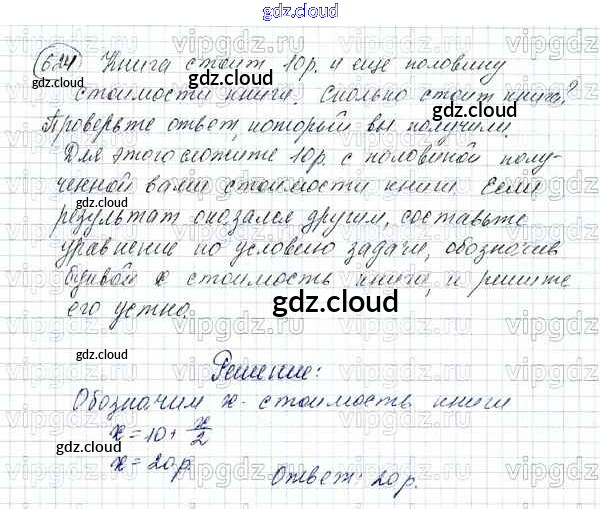 gdz.cloud
624 Книга стоит 10р. и еще половину
стоимости книги. Сколько стоит книга?
Проверьте ответ, который вы получили.
Для этого сложите 10р. с половиной полу-
ченной вами стоимости книги. Если
результат оказался другим, составьте
уравнение по условию задачи, обозначив
буквой x стоимость книги, и решите
его устно.
gdz.cloud
Решение:
Обозначим x - стоимость книги
x = 10 + x/2
x = 20р.
Ответ: 20р.